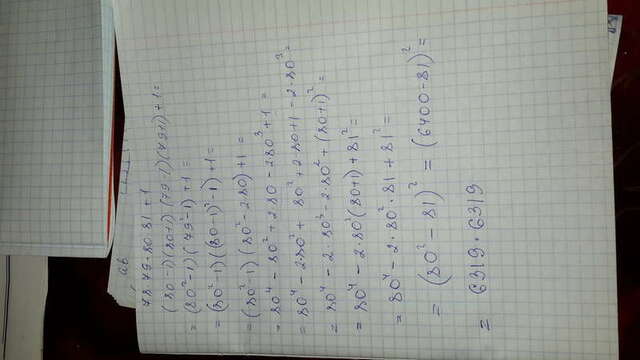 ab
78·79·80·81+1
(80-1)(80+1)(79-1)(79+1)+1=
=(80²-1)(79²-1)+1=
=(80²-1)((80-1)²-1)+1=
=(80²-1)(80²-2·80)+1=
=80⁴-80²+2·80-2·80³+1=
=80⁴-2·80²+80²+2·80+1-2·80³=
=80⁴-2·80³-2·80²+(80+1)²=
=80⁴-2·80²(80+1)+81²=
=80⁴-2·80²·81+81²=
=(80²-81)²=(6400-81)²=
=6319·6319